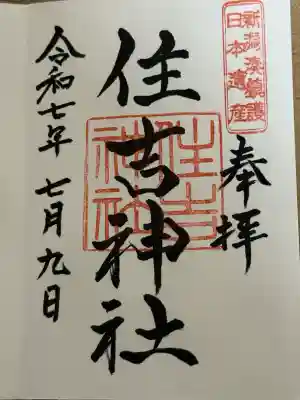 新潟湊鎮護
日本遺産
奉拝
住吉神社
住吉
神社
令和七年 七月九日